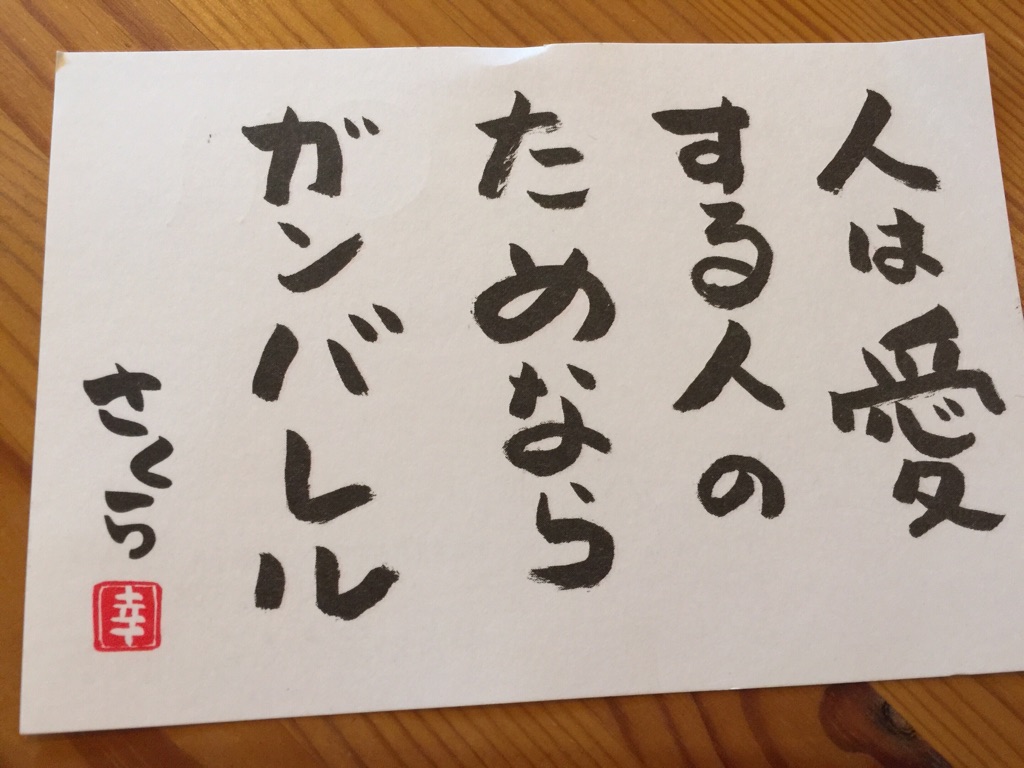 人は愛
する人の
ためなら
ガンバレル
さくら
幸